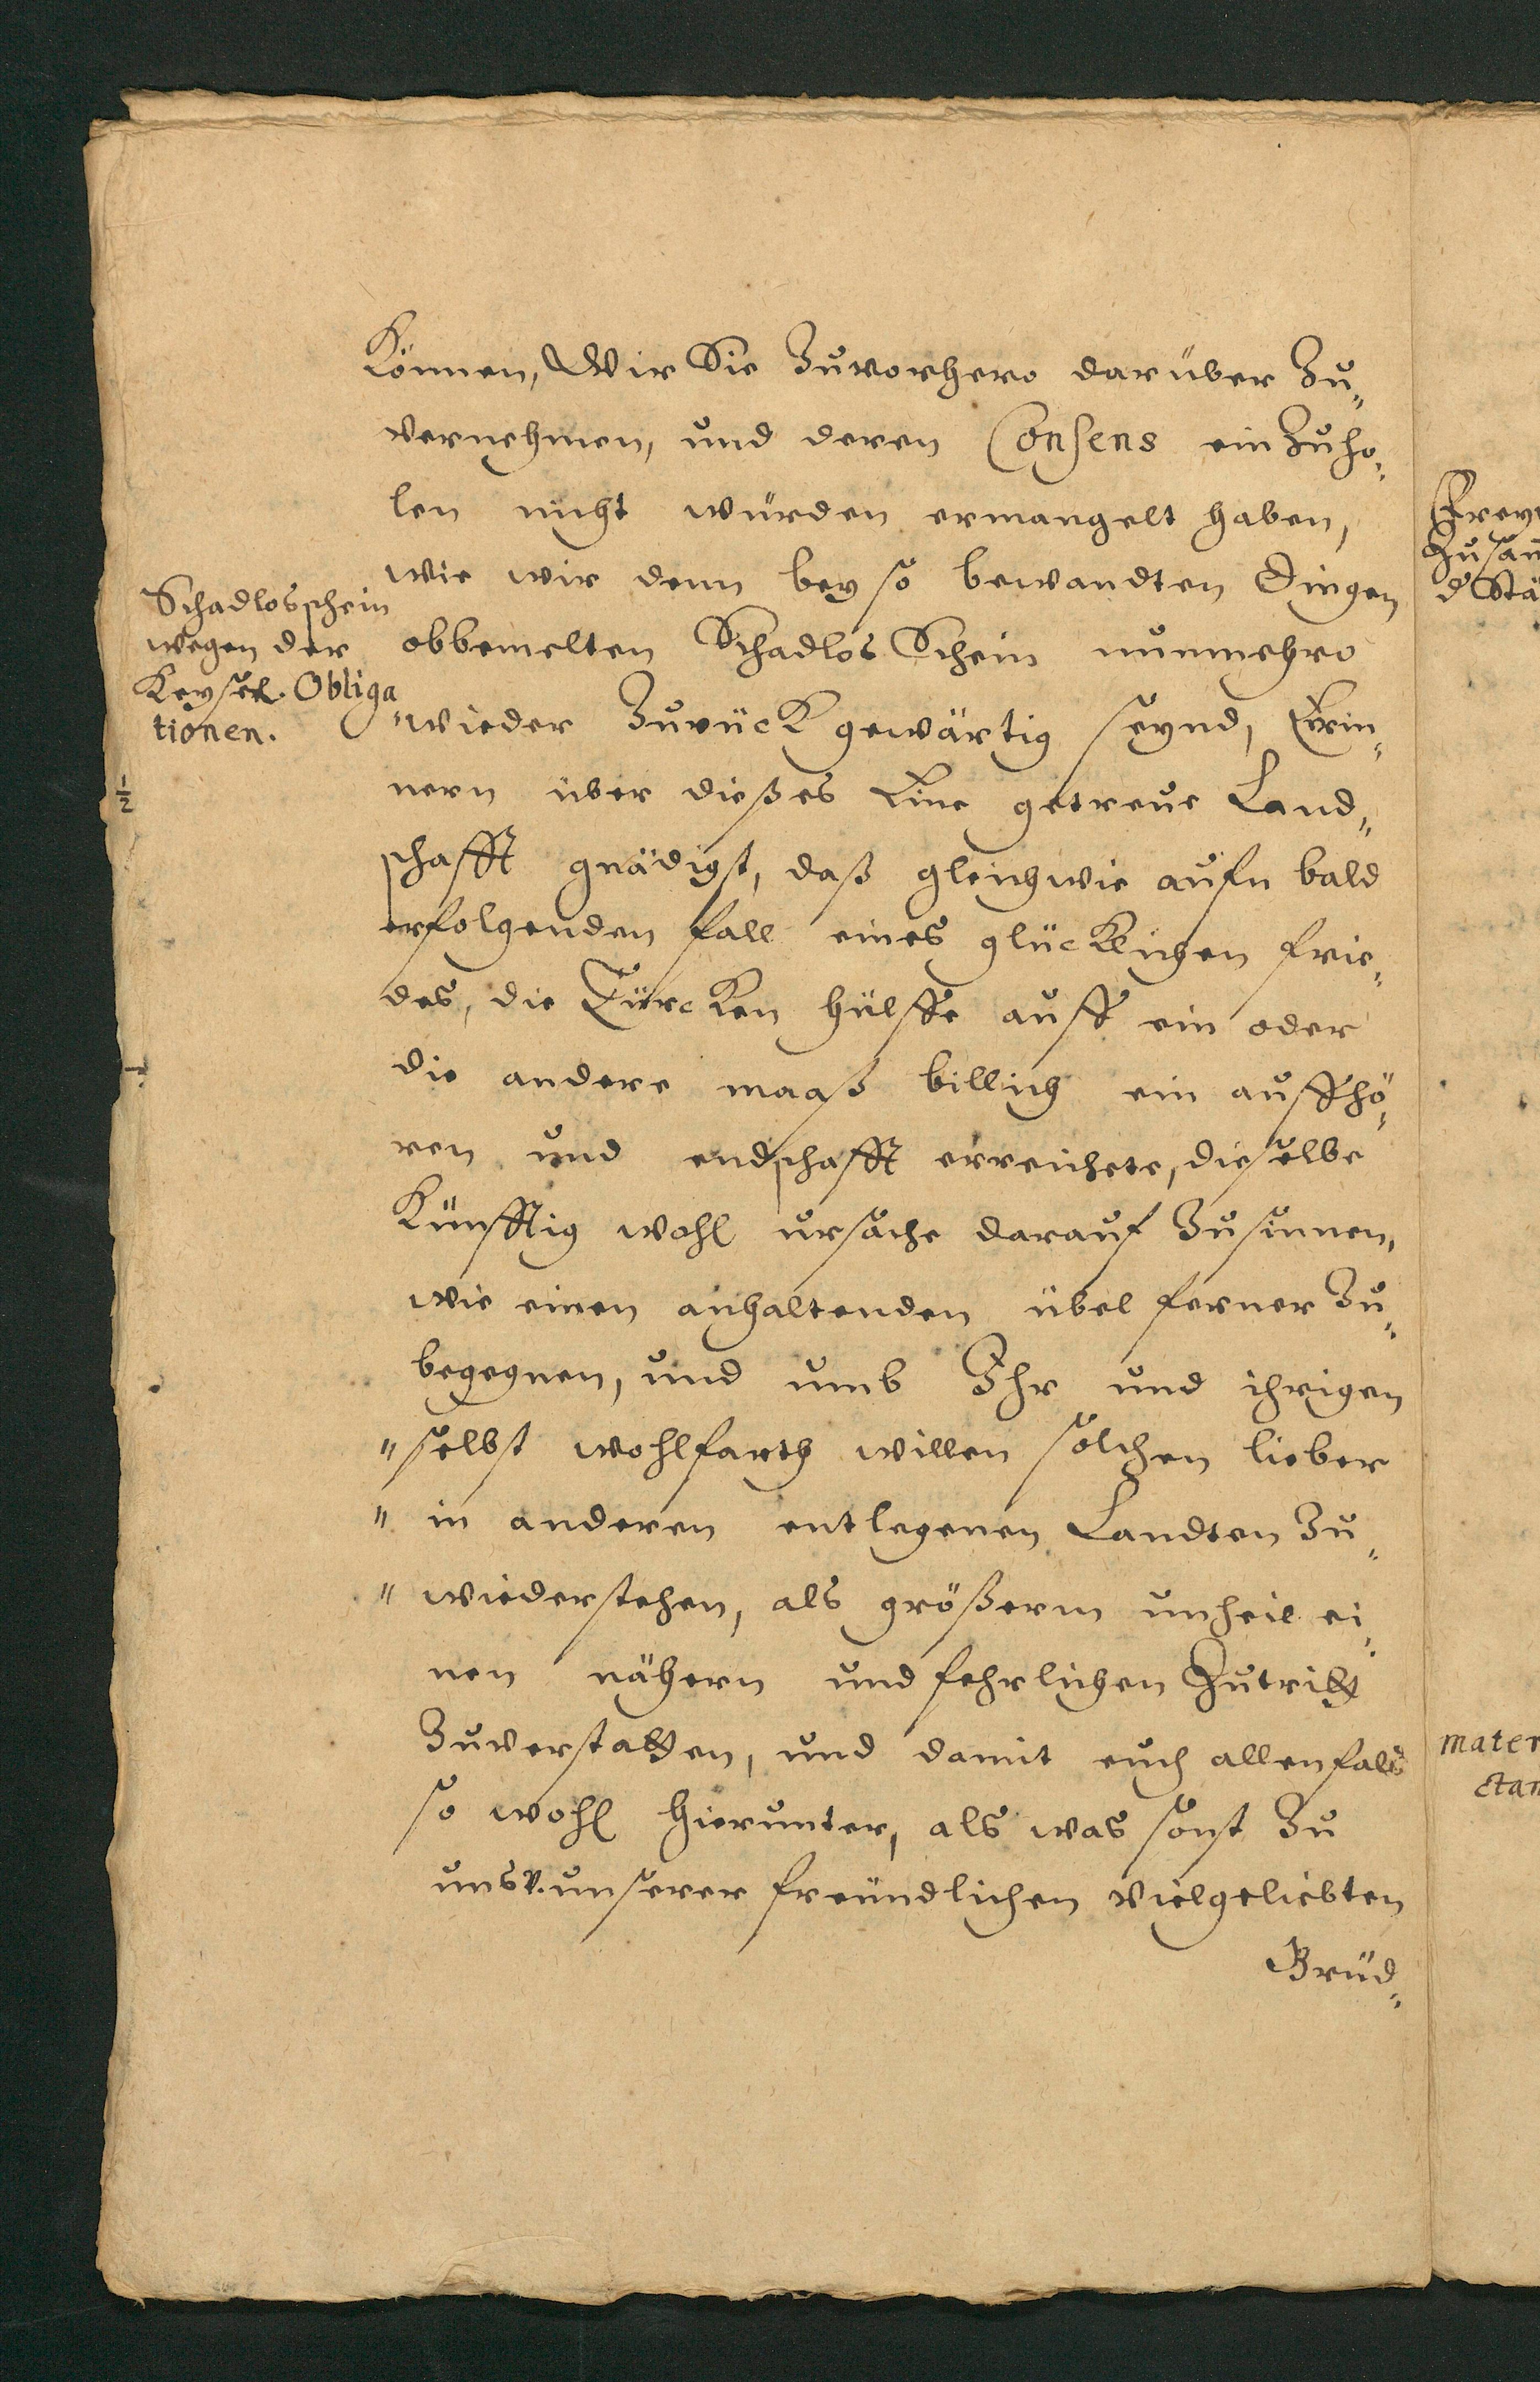 Können, Wir Sie Zuvorhero darüber Zu„
vernehmen, und deren Consens ein Zuho„
len nicht würden ermangelt haben,
wie wir denn bey so bewandten Dingen
Schadlosschein
wegen der
Keyserl. Obliga
tionen.
obbemelten Schadlos Schein nunmehro
"wieder Zurück gewärtig seynd, Erin„
nern über dießes Eine getreue Land„
schafft gnädigst, daß gleichwie aufn bald
erfolgenden fall eines glücklichen frie„
des, die Türcken hülffe auff ein oder
die andere maaß billich ein auffhö„
ren und endschafft erreichete, dieselbe
Künfftig wohl ursache darauf Zusinnen,
wie einen anhaltenden übel ferner Zu„
begegnen, und umb Ihr und ihrigen
" selbst wohlfarth willen solchen lieber
" in anderen entlegenen Landten Zu„
" wiederstehen, als größerm unheil ei„
nen nähern und fehrlichen Zutritt
Zuverstatten, und damit euch allenfals
so wohl hierunter, als was sonst Zu
uns u. unserer freundlichen vielgeliebten
Brüd„
1/2
mater